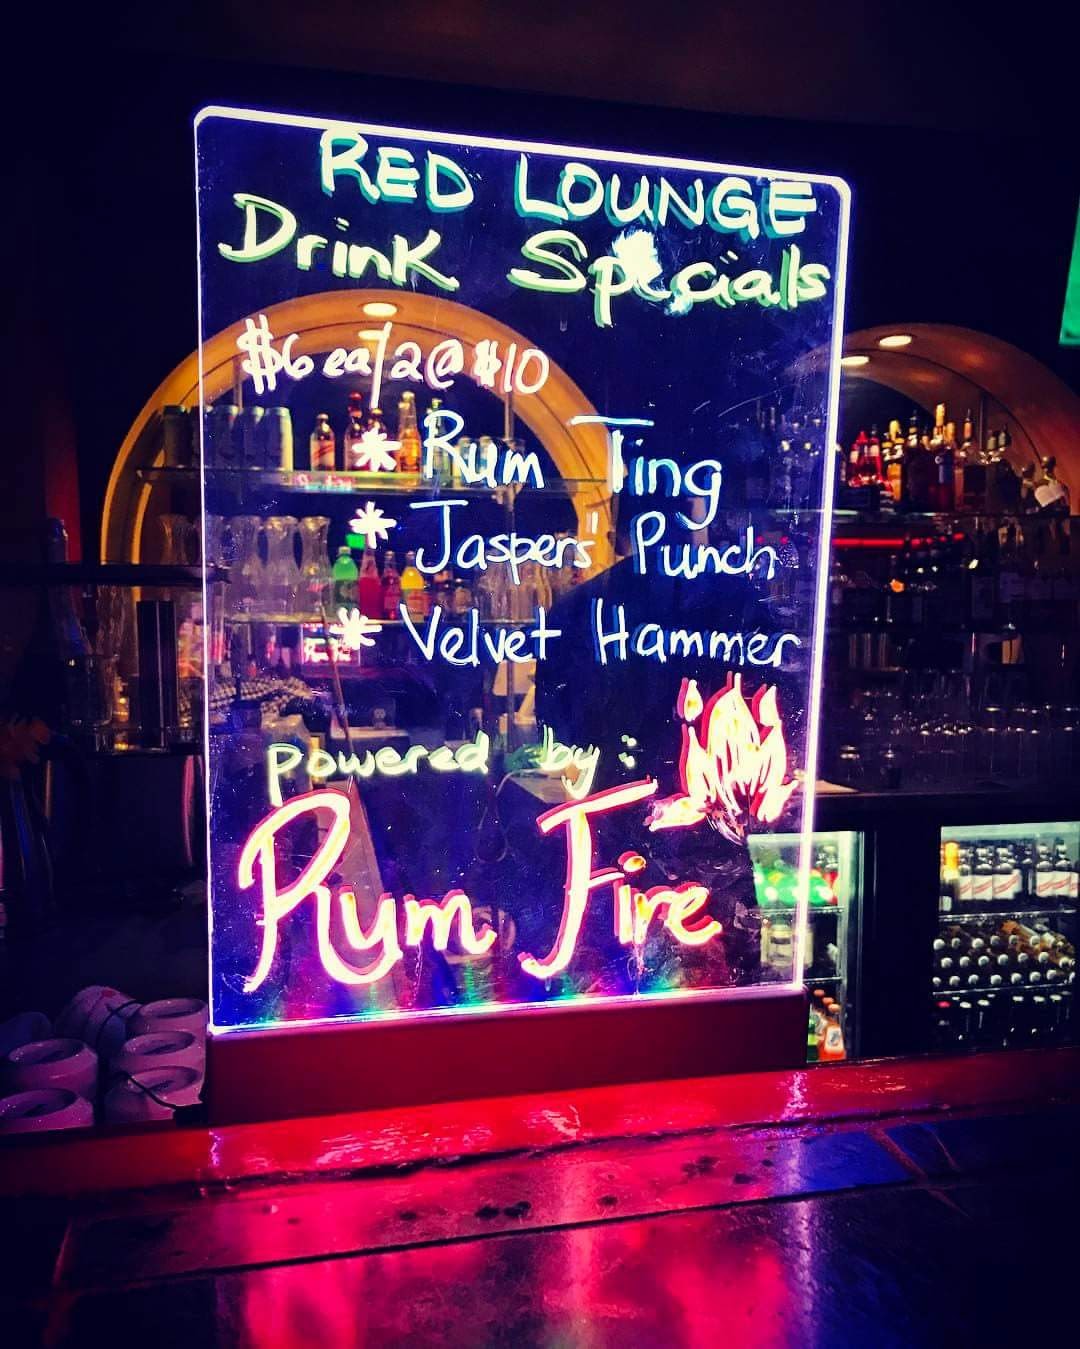 RED LOUNGE
Drink Specials
$6 ea/2@$10
* Rum Ting
* Jaspers" Punch
* Velvet Hammer
powered by:
Rum Fire